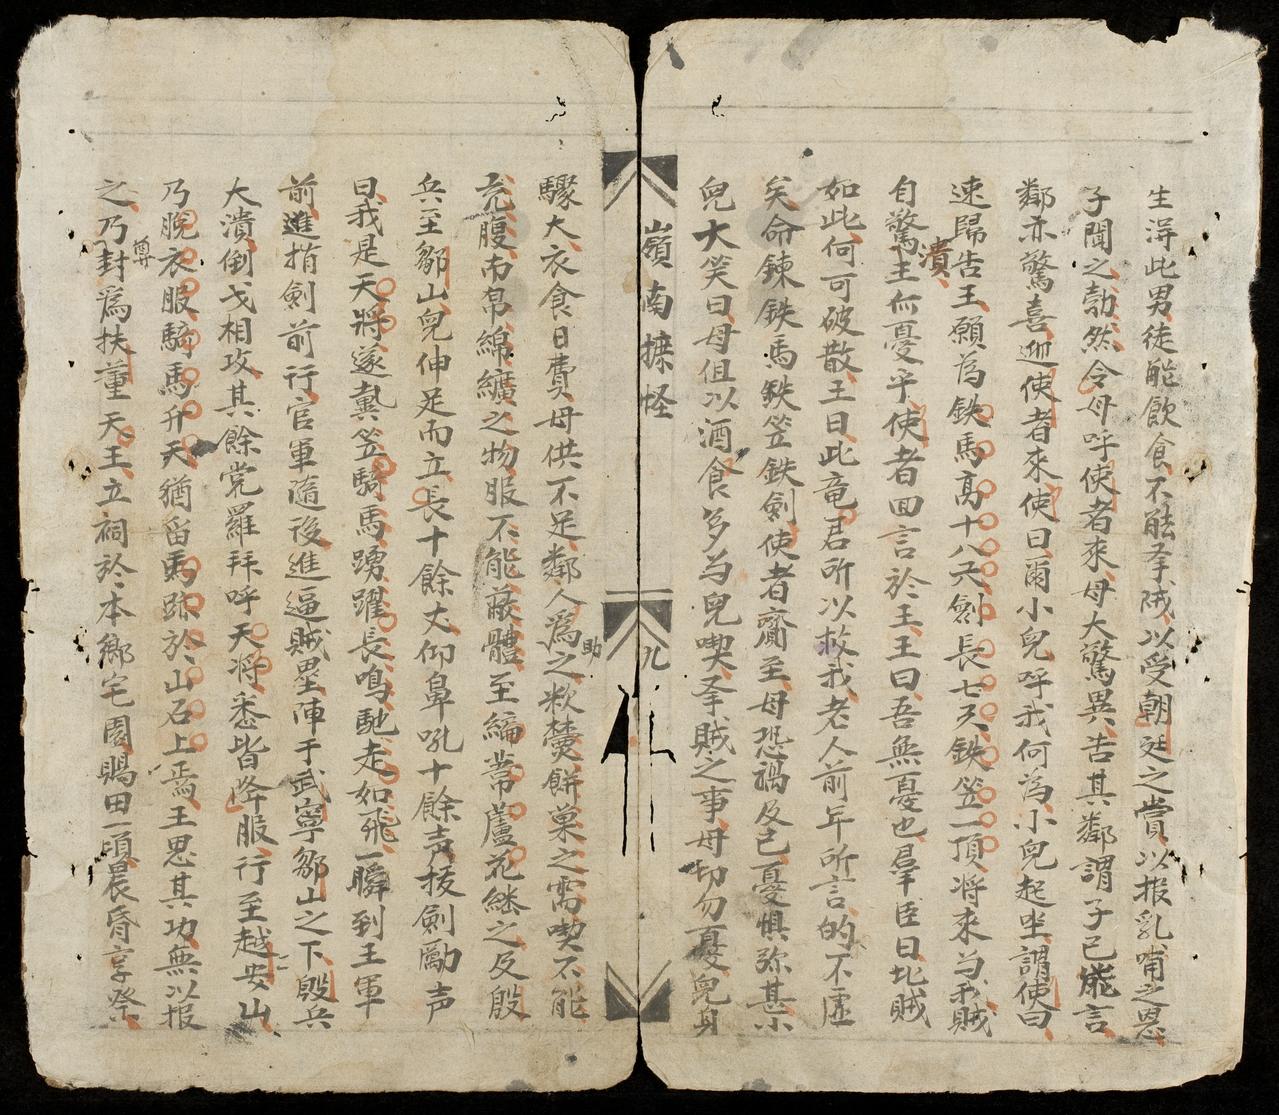 生浔此男徒能飲食不能孝戝以受朝廷之賞以报乳哺之恩
子聞之勃然令母呼使者來母大驚異告其鄰謂子已能言
鄰亦驚喜迎使者來使曰爾小兒呼我何為小兒起坐謂使曰
速歸告王願為鉄馬髙十八尺劍長七尺鉄笠一頂将來為我賊
自驚潰王何憂乎使者回言於王王曰吾無憂也羣臣曰此賊
如此何可破散王曰此竜君所以救我老人前年所言的不虛
矣命鍊鉄馬鉄笠鉄劍使者齎至母恐禍及己憂惧弥甚小
兒大笑曰母但以酒食多為兒喫孝賊之事母切勿憂兒身
嶺南摭怪
九
驟大衣食日費母供不足鄰人為之助炊爨餅菓之需喫不能
充腹布帛綿纊之物服不能蔽體至編葦蘆花継之及殷
兵至鄒山兒伸足而立長十餘丈仰鼻吼十餘声拔劍勵声
曰我是天將遂戴笠騎馬踴躍長鳴馳走如飛一瞬到王軍
前進指劍前行官軍隨後進逼賊壘陣于武寧鄒山之下殷兵
大潰倒戈相攻其餘党羅拜呼天将悉皆降服行至越安山
乃脫衣服騎馬升天猶畱馬跡於山石上焉王思其功無以报
之乃封尊為扶董天王立祠於本鄉宅園賜田一頃晨昏享祭